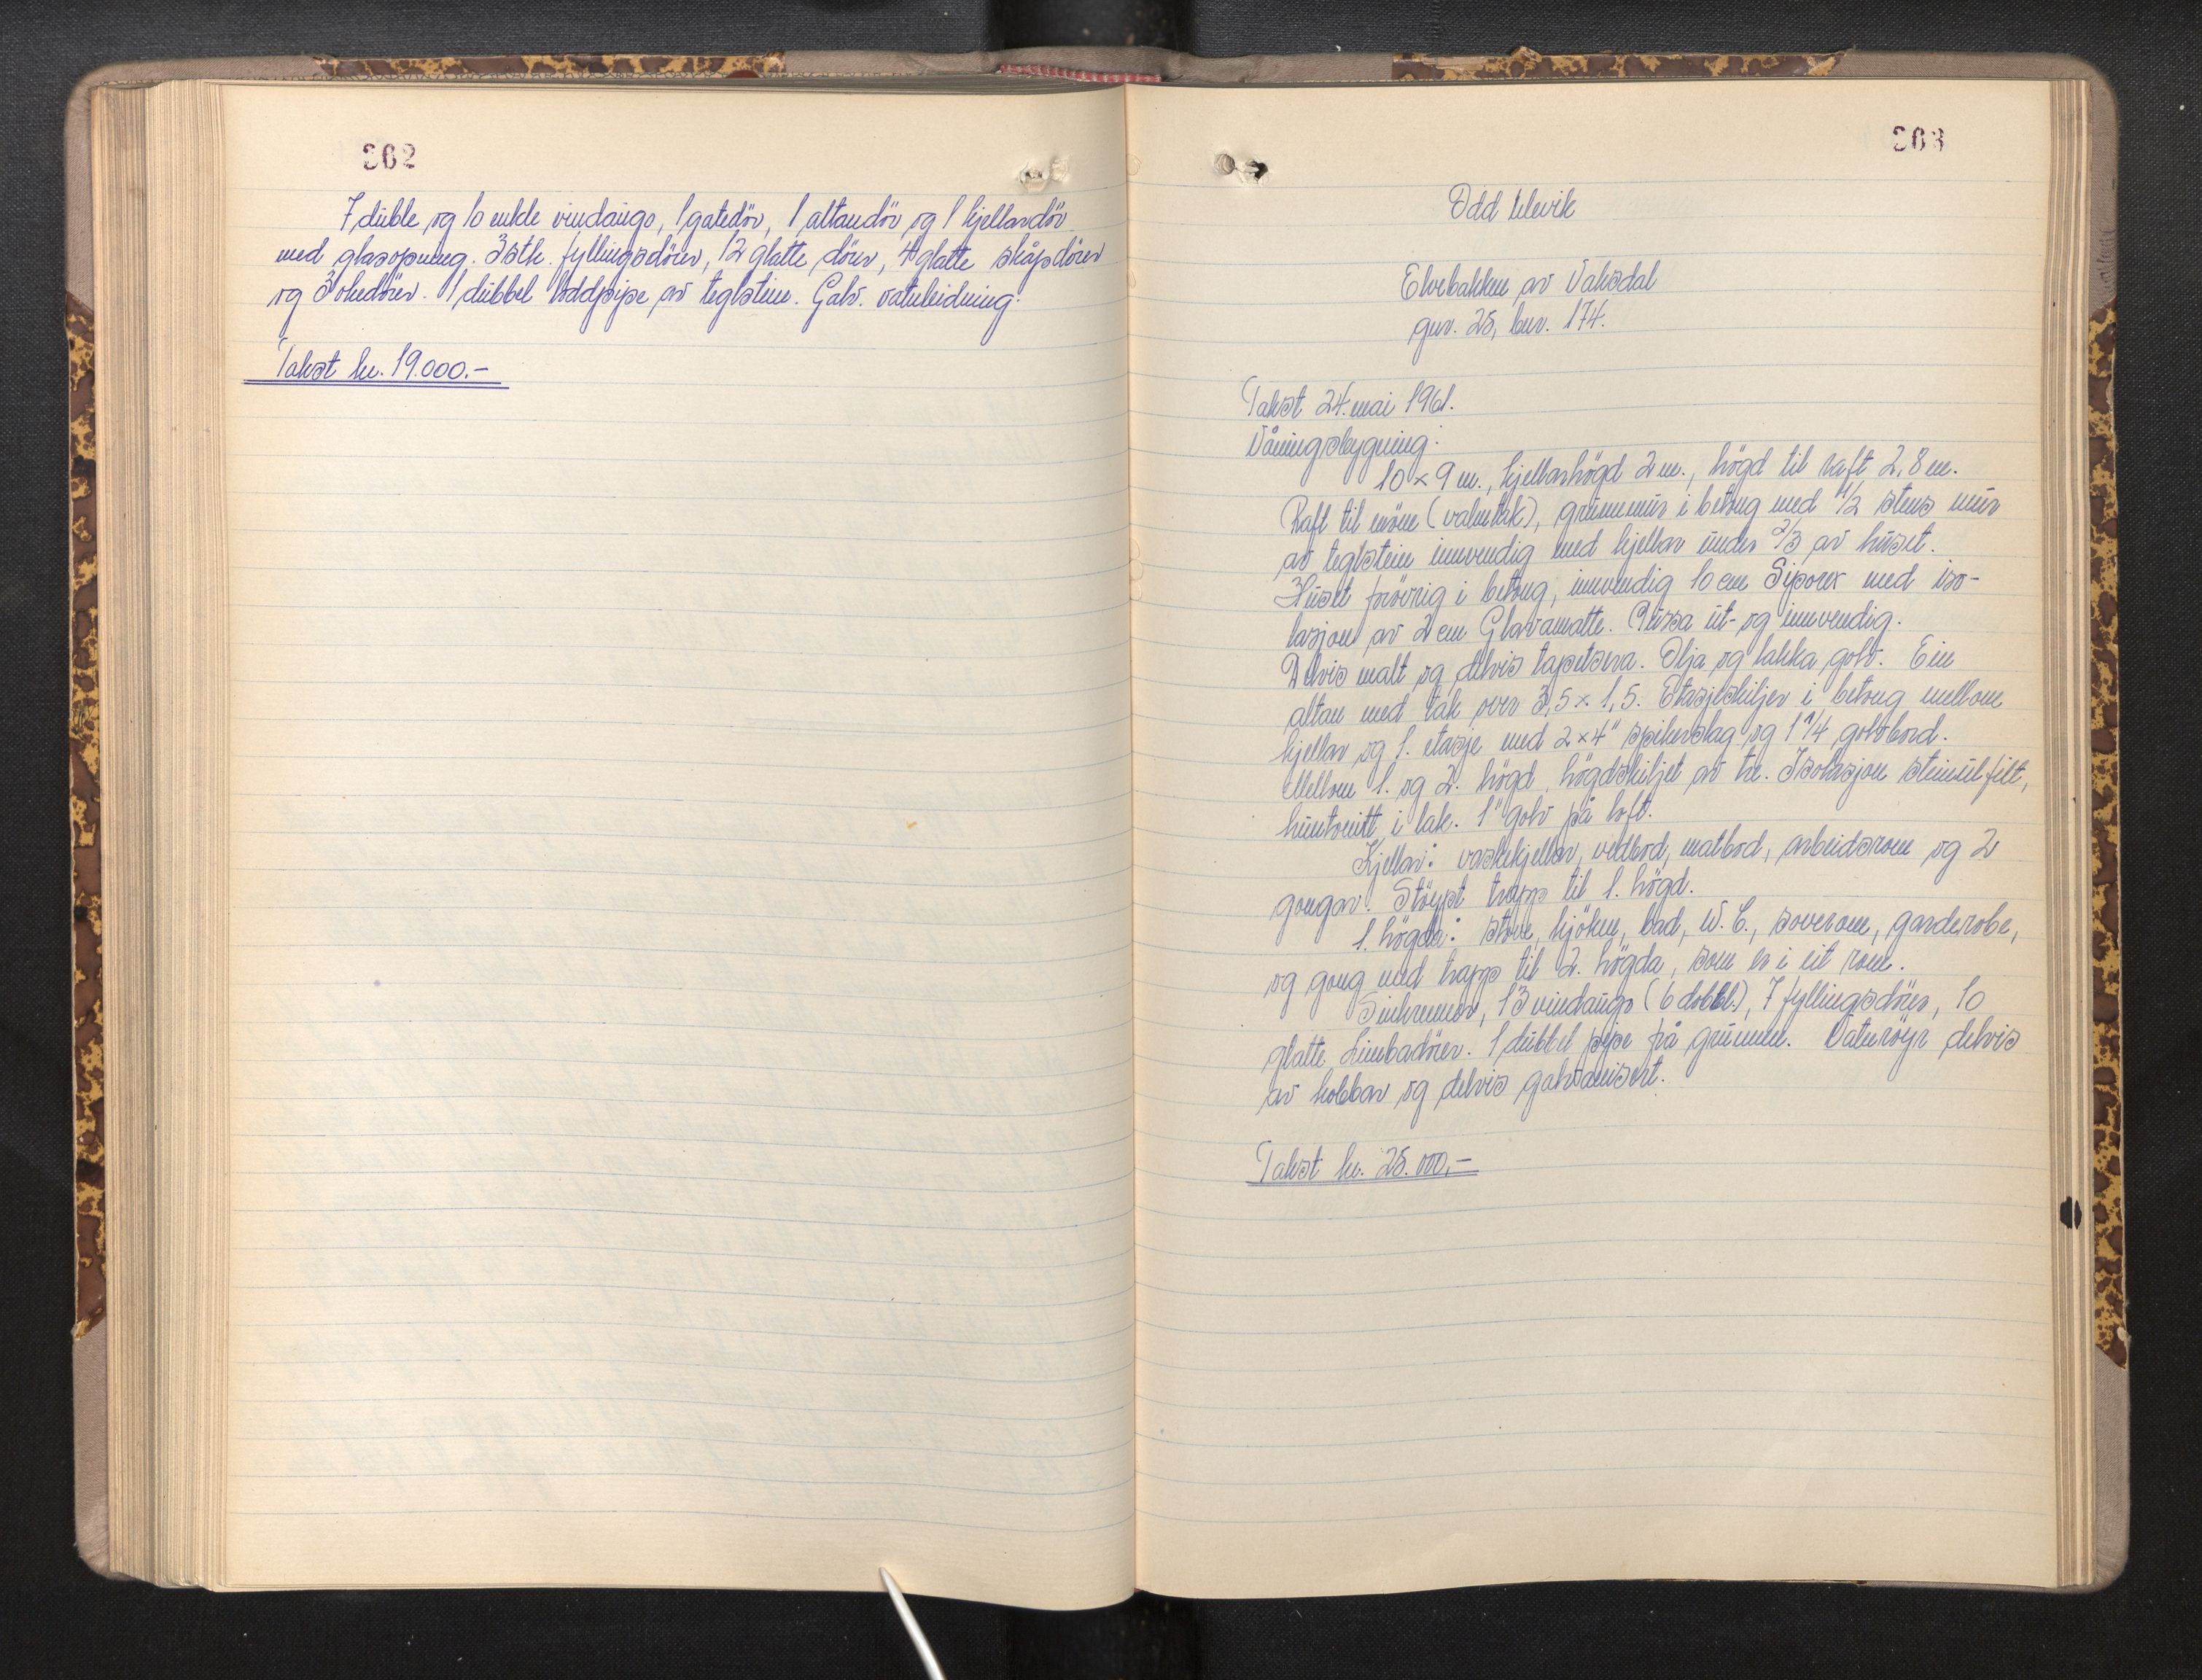 362
7 duble og 10 enkle vindaugo, 1 gatedör, 1 altandör og 1 kjellardör
med glasopning. 3 stk. fyllingsdörer, 12 glatte dörer, 4 glatte skåpdörer
og 3 okedörer. 1 dubbel loddpipe av teglstein. Galv. vatnleidning.
Takst kr. 19.000.-
363
Odd Ulevik
Elvebakken av Vaksdal
gnr. 25, bnr. 174.
Takst 24. mai 1961.
Våningsbygning:
10 x 9 m., kjellarhögd 2 m., högd til raft 2,8 m.
Raft til möne (valmtak), grunnmur i betong med 1/2 stens mur
av teglstein innvendig med kjellar under 2/3 av huset.
Huset forövrig i betong, innvendig 10 cm Siporex med iso-
lasjon av 2 cm Glavamatte. Pussa ut- og innvendig.
Delvis malt og delvis tapetsera. Olja og lakka golv. Ein
altan med tak over 3,5 x 1,5. Etasjeskiljer i betong mellom
kjellar og 1. etasje med 2 x 4" spikerslag og 1 1/4 golvbord.
Mellom 1. og 2. högd, högdskiljet av tre. Isolasjon steinullfilt,
huntonitt i tak. 1" golv på loft.
Kjellar: vaskekjellar, vedbod, matbod, arbeidsrom og 2
gongar. Stöypt trapp til 1. högd.
1. högda: stove, kjöken, bad, W.C., soverom, garderobe,
og gong med trapp til 2. högda, som er i eit rom.
13 vindaugo (6 dobbl.), 7 fyllingsdörer, 10
glatte Limbadörer. 1 dubbel pipe på grunnen. Vatnröyr delvis
av kobbar og delvis galvanisert.
Takst kr. 25.000,-